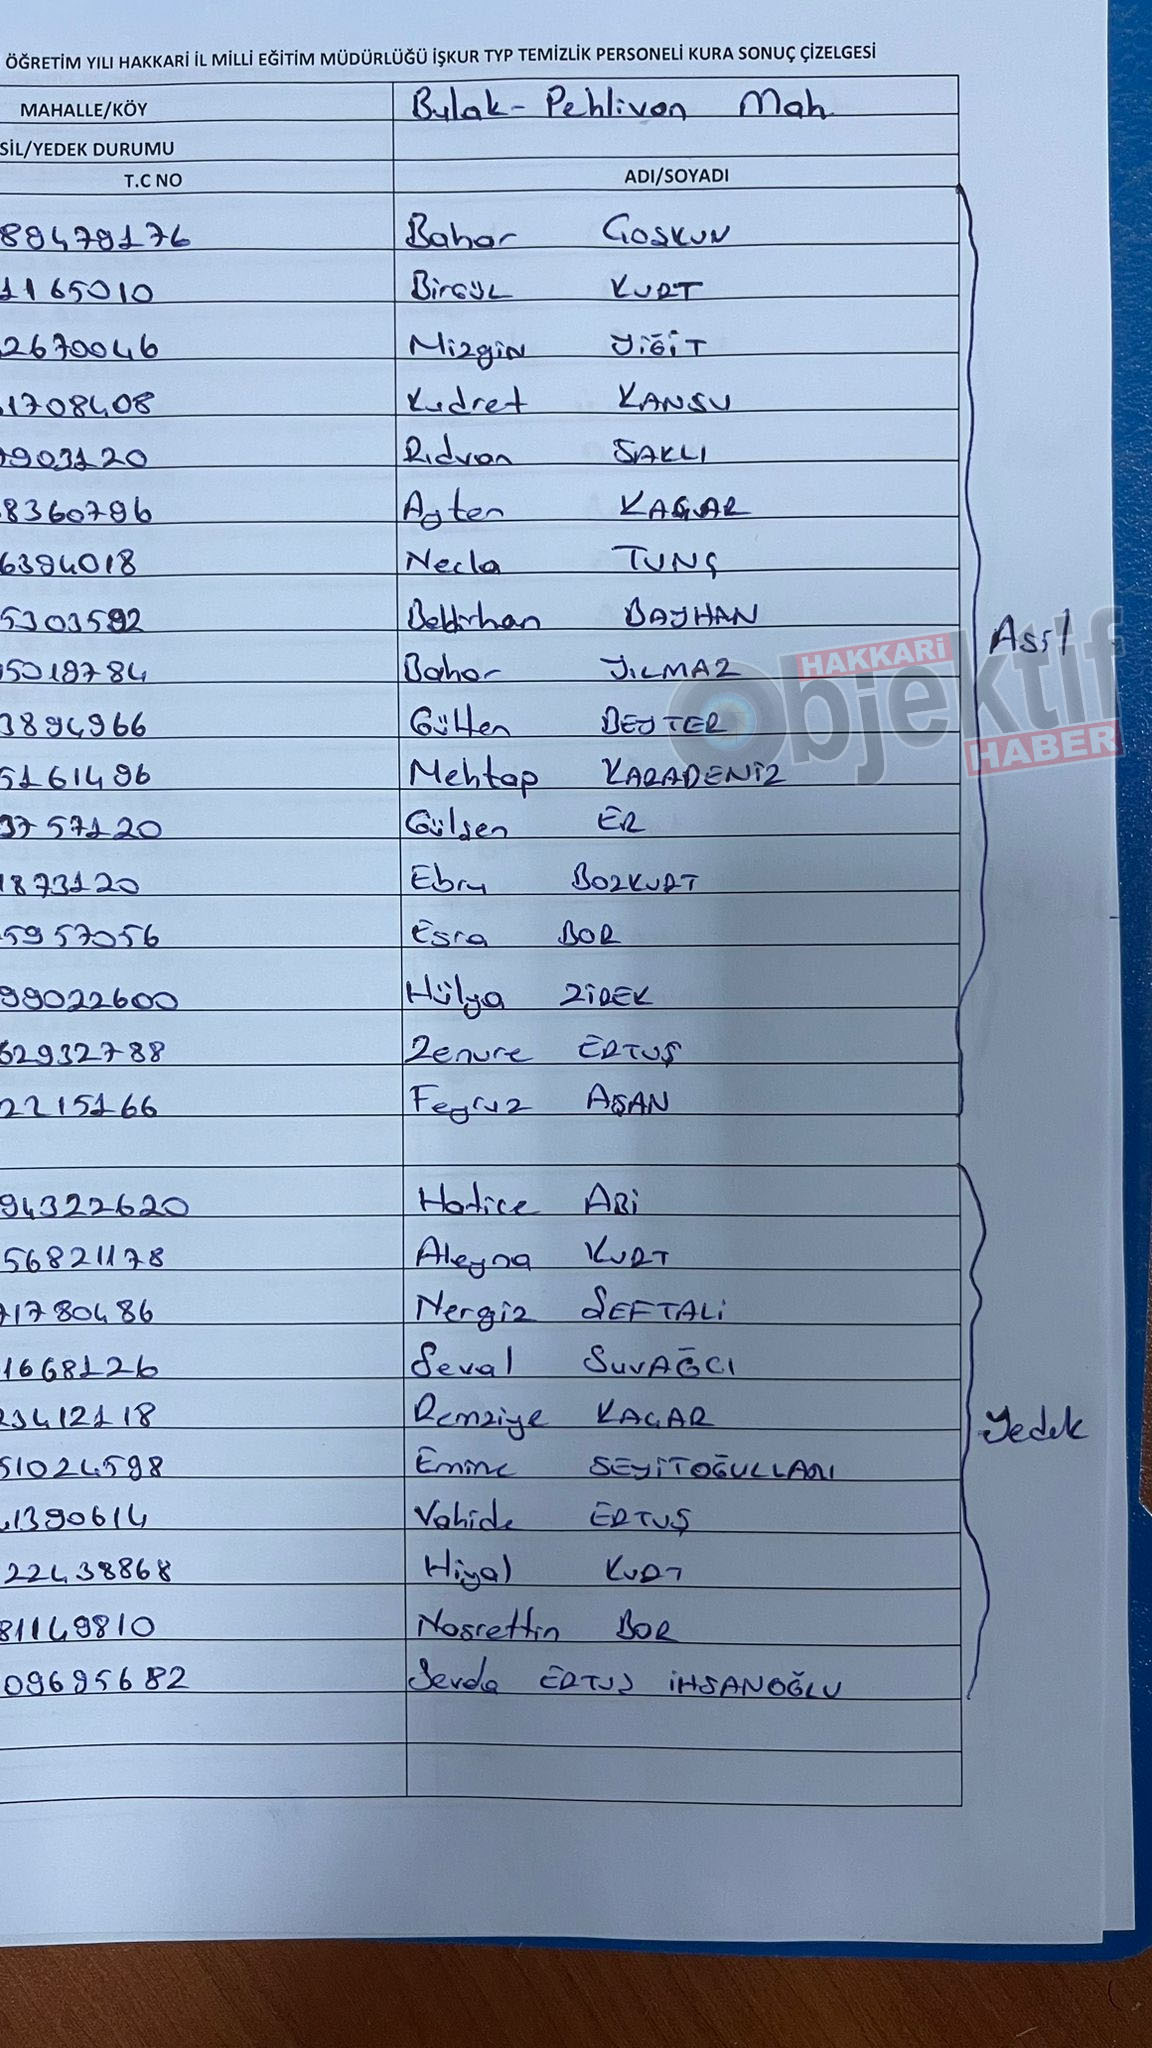 ÖĞRETİM YILI HAKKARİ İL MİLLİ EĞİTİM MÜDÜRLÜĞÜ İŞKUR TYP TEMİZLİK PERSONELİ KURA SONUÇ ÇİZELGESİ
MAHALLE/KÖY Bulak-Pehlivan Mah.
SİL/YEDEK DURUMU
T.C NO ADI/SOYADI
89479176 Bahar COŞKUN
1165010 Birgül KURT
2670046 Mizgin YİĞİT
1708408 Kudret KANSU
903120 Rıdvan SAKLI
8360796 Ayten KAÇAR
6394018 Necla TUNÇ
5303592 BAYHAN
5019784 Bahar YILMAZ
3894966 Gülten BEYTER
5161496 Mehtap KARADENİZ
3757120 Gülşen ER
1873120 Ebru BOZKURT
5957056 Esra BOR
99022600 Hülya ZİREK
62932788 Zenure ERTUŞ
2215166 Feyruz AŞAN
Asil
HAKKARİ
Objektif
HABER
94322620 Hatice ABİ
56821178 Aleyna KURT
71780486 Nergiz ŞEFTALİ
1668126 Seval SUVAĞCI
23412118 Remziye KAÇAR
51024598 Emine SEYİTOĞULLARI
1390614 Vahide ERTUŞ
22438868 Hiyal KURT
81149810 Nasrettin BOR
09695682 Sevda ERTUŞ İHSANOĞLU
Yedek